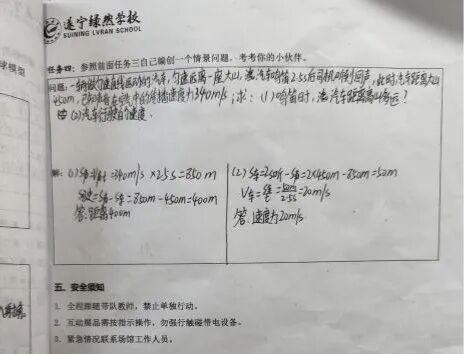 遂宁绿然学校
SUINING LVRAN SCHOOL
任务四：参照前面任务三自己编创一个情景问题，考考你的小伙伴。
问题：一辆做匀速直线运动的汽车，匀速远离一座大山，汽车鸣笛2.5s后司机听到回声，此时汽车距离大山
450m，已知声音在空气中的传播速度为340m/s 求：(1)鸣笛时，汽车距离高山多远？
(2)汽车行驶的速度.
解：(1)S声=V声t=340m/s×2.5s=850m
=S声-S=850m-450m=400m
答：距离400m
(2)S车=2S-S声=2×450m-850m=50m
V车=S车/t=50m/2.5s=20m/s
答：速度为20m/s
五、安全须知
1. 全程跟随带队教师，禁止单独行动。
2. 互动展品需按指示操作，勿强行触碰带电设备。
3. 紧急情况联系场馆工作人员。